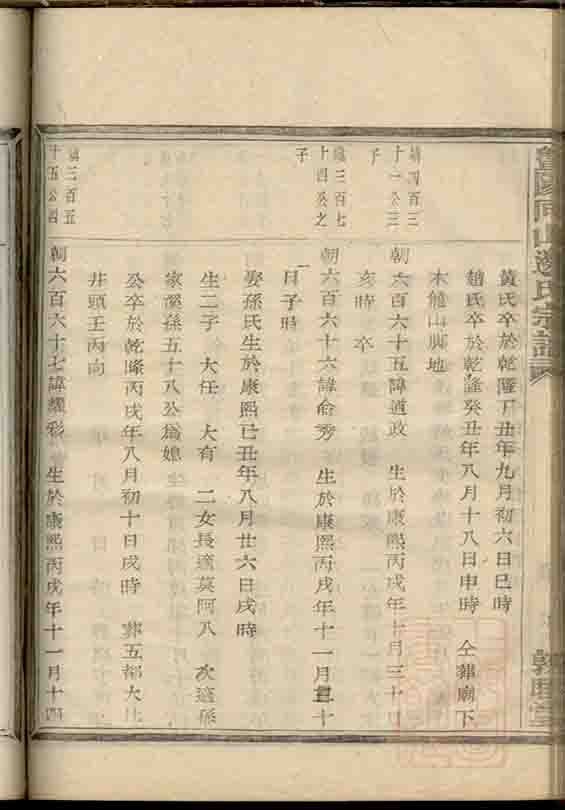 黃氏卒於乾隆丁丑年九月初六日巳時
趙氏卒於乾隆癸丑年八月十八日申時　仝葬廟下
木麓山與地
鎮四百三
十一公三
子
朝六百六十五諱道政　生於康熙丙戌年十月三十日
亥時　卒
鎮三百七
十四公之
子
朝六百六十六諱俞秀　生於康熙丙戌年十一月三十
日子時
娶孫氏生於康熙己丑年八月廿六日戌時
生二子　大任　大有　二女長適莫阿八　次適孫
家溪孫五十八公為媳
公卒於乾隆丙戌年八月初十日戌時　葬五都大
井頭壬丙向
鎮三百五
十五公四
朝六百六十七諱耀彩　生於康熙丙戌年十一月十四